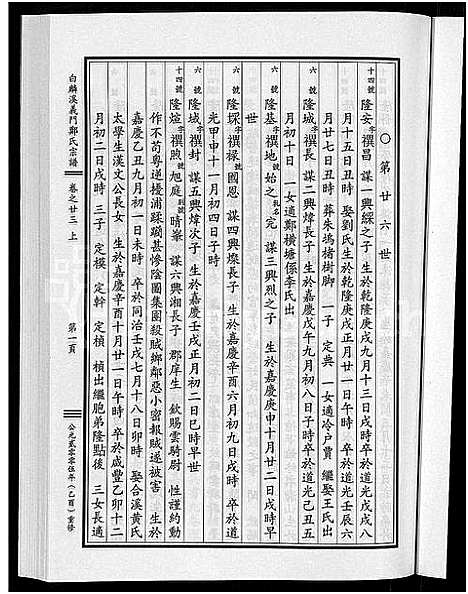 白麟溪義門鄭氏宗譜
卷之廿三 上
第一頁
公元貳零零伍年(乙酉)重修
○第廿六世
十四號 隆安 字 禩昌 謀一興綵之子 生於乾隆庚戌九月十三日戌時 卒於道光庚戌八
月十五日丑時 娶劉氏生於乾隆庚戌十月廿一日午時 卒於道光壬辰六
月廿七日丑時 葬朱塢楮樹脚 一子 定典 一女適冷戶賈 繼娶王氏出
六號 隆城 字 禩長 謀二興煒長子 生於嘉慶戊午九月初八日子時卒於道光己丑五
月初十日 一女適鄭橫塘係李氏出
六號 隆基 字 禩地 始之 乳名 完 謀三興烈之子 生於嘉慶庚申十月廿二日戌時早
世
六號 隆琛 字 禩祿 國恩 謀四興燦長子 生於嘉慶辛酉六月初九日戌時 卒於道
光甲申十一月初四日子時
六號 隆域 字 禩封 謀五興煒次子 生於嘉慶壬戌正月初二日巳時早世
十四號 隆煊 字 禩煦 旭庭 別號 晴峯 謀六興湘長子 郡庠生 欽賜雲騎尉 性謹約動
作不苟粵逆擾浦蹂躪甚慘陰圖集團殺賊鄉鄰惡小密報賊遂被害 生於
嘉慶乙丑九月初一日未時 卒於同治壬戌七月十八日卯時 娶合溪黃氏
太學生漢文公長女 生於嘉慶辛酉十月廿一日午時 卒於咸豐乙卯十二
月初二日戌時 三子 定模 定幹 定楨 楨出繼胞弟隆點後 三女長適